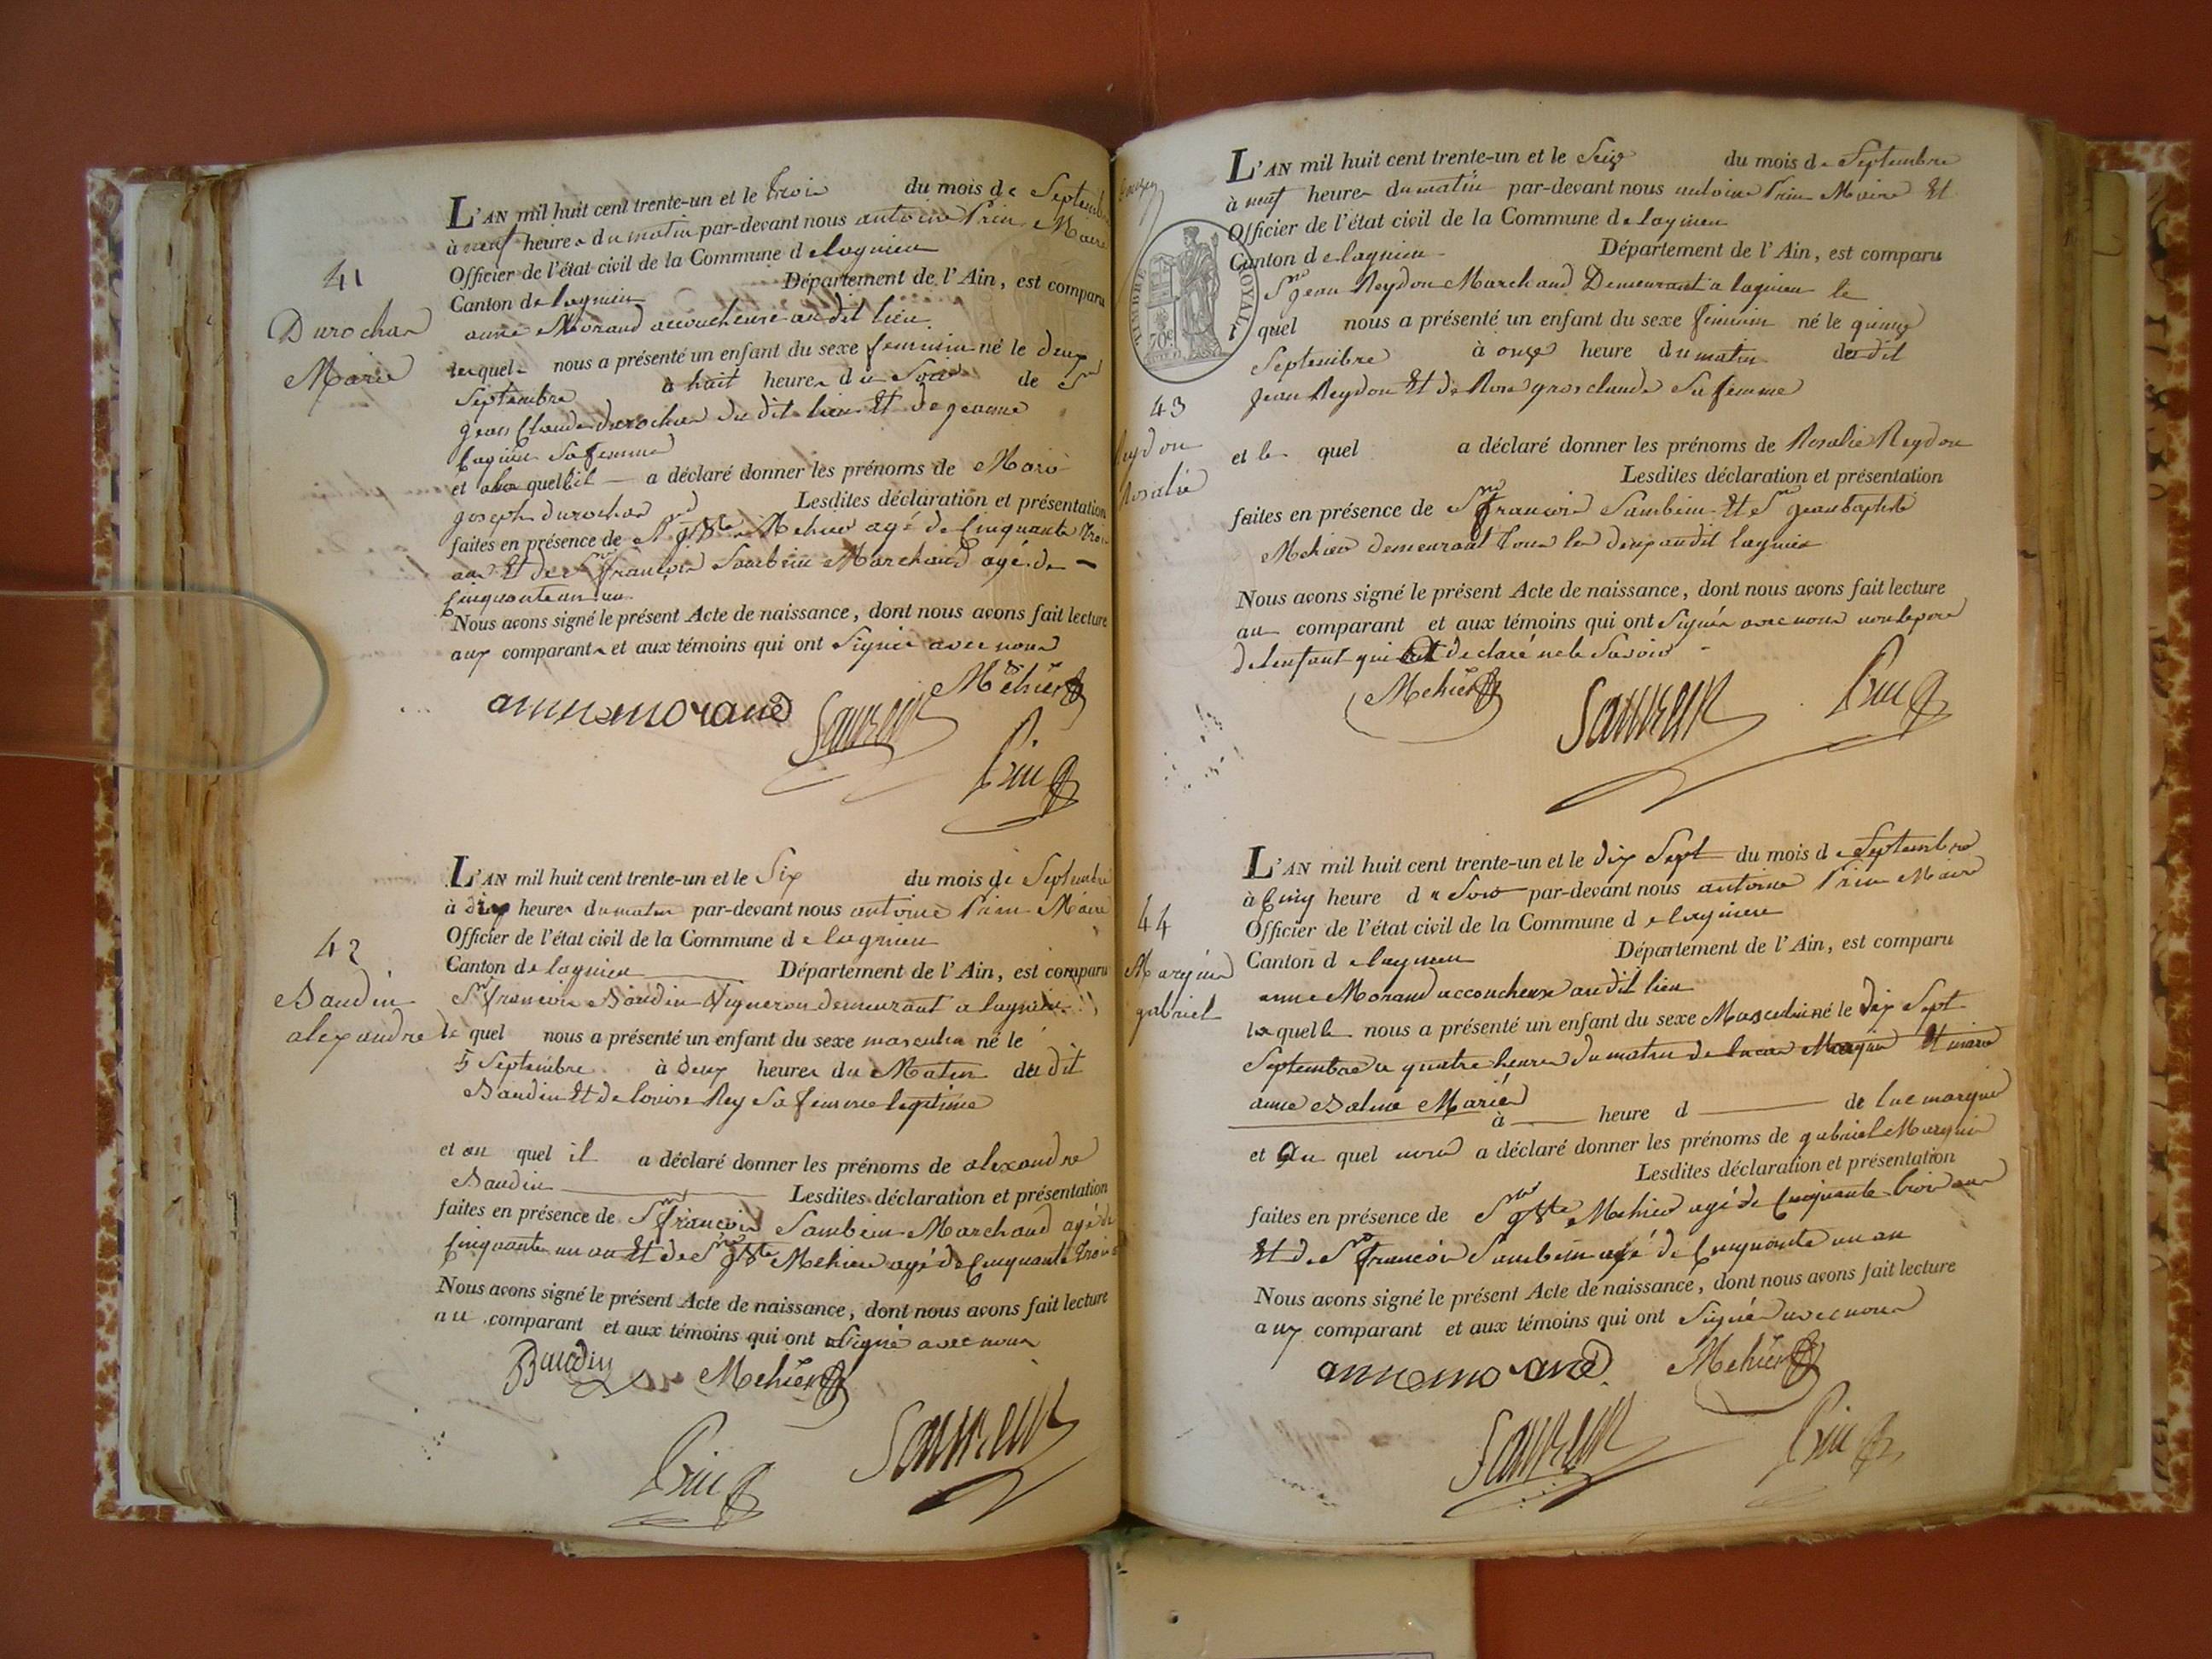 41
Durochar
Marie
L'AN mil huit cent trente-un et le trois du mois de Septembre
à neuf heures du matin par-devant nous antoine Prin Maire
Officier de l'état civil de la Commune de lagnieu
Canton de lagnieu Département de l'Ain, est comparu
anne Morand accoucheuse au dit lieu
laquelle nous a présenté un enfant du sexe feminin né le deux
Septembre à huit heures du Soir de Sr
jean Claude durochar du dit lieu Et de jeanne
sa femme
et quel il a déclaré donner les prénoms de Marie
joseph durochar Lesdites déclaration et présentation
faites en présence de Sr jn Bte Mehier agé de Cinquante trois
ans Et de Sr françois Sambein Marchand agé de
Cinquante un an
Nous avons signé le présent Acte de naissance, dont nous avons fait lecture
aux comparants et aux témoins qui ont Signé avec nous
anne morand
Mehier
Prin
42
Baudin
alexandre
L'AN mil huit cent trente-un et le Six du mois de Septembre
à dix heures du matin par-devant nous antoine Prin Maire
Officier de l'état civil de la Commune de lagnieu
Canton de lagnieu Département de l'Ain, est comparu
Sr francois Baudin Vigneron demeurant a lagnieu
le quel nous a présenté un enfant du sexe masculin né le
5 Septembre à deux heures du Matin du dit
Baudin Et de louise Rey Sa femme legitime
et au quel il a déclaré donner les prénoms de alexandre
Baudin Lesdites déclaration et présentation
faites en présence de Sr françois Sambein Marchand agé de
Cinquante un an Et de Sr jn Bte Mehier agé de Cinquante trois
Nous avons signé le présent Acte de naissance, dont nous avons fait lecture
au comparant et aux témoins qui ont Signé avec nous
Baudin
Mehier
Prin
TIMBRE ROYAL
70c
43
Reydon
Rosalie
L'AN mil huit cent trente-un et le Seize du mois de Septembre
à neuf heures du matin par-devant nous antoine Prin Maire Et
Officier de l'état civil de la Commune de lagnieu
Canton de lagnieu Département de l'Ain, est comparu
Sr jean Reydon Marchand Demeurant a lagnieu le
quel nous a présenté un enfant du sexe feminin né le quinze
Septembre à onze heure du matin du dit
jean Reydon Et de Rose grosclaude Sa femme
et le quel a déclaré donner les prénoms de Rosalie Reydon
Lesdites déclaration et présentation
faites en présence de Sr françois Sambein Et Sr jean baptiste
Mehier demeurant tous les deux audit lagnieu
Nous avons signé le présent Acte de naissance, dont nous avons fait lecture
au comparant et aux témoins qui ont Signés avec nous non le pere
de lenfant qui a déclaré ne le Savoir
Mehier
Prin
44
Marguin
gabriel
L'AN mil huit cent trente-un et le dix Sept du mois de Septembre
à Cinq heure du Soir par-devant nous antoine Prin Maire
Officier de l'état civil de la Commune de lagnieu
Canton de lagnieu Département de l'Ain, est comparu
anne Morand accoucheuse au dit lieu
laquelle nous a présenté un enfant du sexe Masculin né le dix Sept
Septembre a quatre heures du matin de lucas Marguin Et marie
anne Mariés
à heure d de luc marguin
et Au quel nous a déclaré donner les prénoms de gabriel Marguin
Lesdites déclaration et présentation
faites en présence de Sr jn Bte Mehier agé de Cinquante trois ans
Et de Sr françois Sambein agé de Cinquante un an
Nous avons signé le présent Acte de naissance, dont nous avons fait lecture
aux comparant et aux témoins qui ont Signés avec nous
anne morand
Mehier
Prin